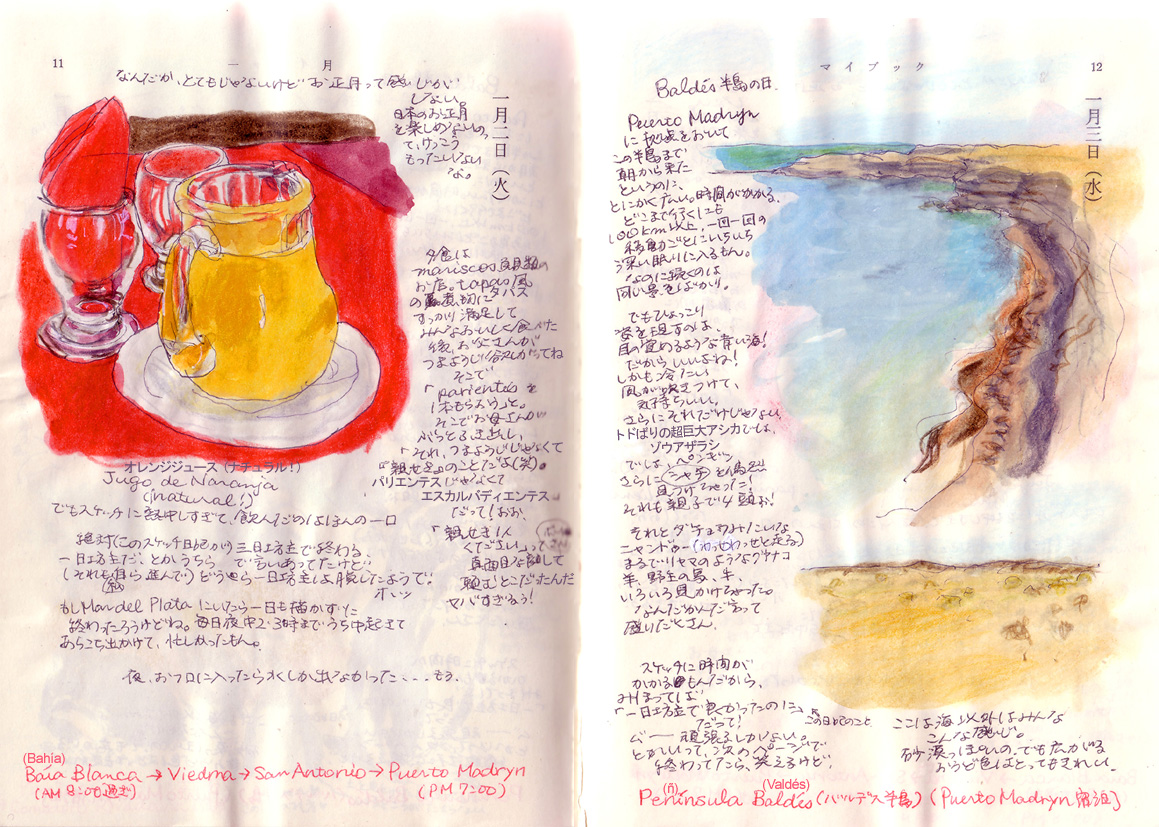 11
一月
なんだか、とてもじゃないけどお正月って感じが
しない。
日本のお正月
を楽しめないの、
て、けっこう
もったいない
な。
一月二日（火）
夕食は
mariscos 魚貝類の
お店。tapas風
タパス
の裏切に
すっかり満足して
みんなおいしく食べた
後、お父さんが
つまようじ欲しがってね
そこで
「parientes を
1本もらおう」と。
そこでお母さんが
「それ、つまようじじゃなくて
『親せき』のことだよ(笑)。
パリエンテスじゃなくて
エスカルバディエンテス
だって！おお、
「親せき1人
ください」って
真面目な顔して
頼むとこだったんだ
ヤバすぎるぅ！
オレンジジュース（ナチュラル！）
Jugo de Naranja
(natural!)
でもスケッチに熱中しすぎて、飲んだのはほんの一口
絶対(このスケッチ日記が)三日坊主で終わる、
一日坊主だ、とかうちら で言いあってたけど
(それも自ら進んで)どうやら一日坊主は脱したようで。
ホッ
もしMar del Plata にいたら一日も描かずに
終わったろうけどね。毎日夜中2・3時まで うち中起きて
あちこち出かけて、忙しかったもん。
夜、おフロに入ったら水しか出なかった・・・もう。
(Bahía)
Baía Blanca → Viedma → San Antonio → Puerto Madryn
(AM 8:00過ぎ)
(PM 7:00)
マイブック
12
一月三日（水）
Baldés 半島の日。
Puerto Madryn
に拠点をおいて
この半島まで
朝から来た
というのに、
とにかくだい。時間がかかる。
どこまで行くにも
100km以上、一回一回の
移動ごとにいちいち
深い眠りに入るもん。
なのに続くのは
同じ景色ばかり。
でもひょっこり
姿を現すのは、
目の覚めるような青い海！
だからいいよね！
しかも冷たい
風が吹きつけて、
気持ちいい。
さらにそれだけじゃない、
トドばりの超巨大アシカでしょ、
ゾウアザラシ
でしょ、ペンギン
さらにシャチ
見つけちゃった！
それも親子で4頭よ！
それとダチョウみたいな
ニャンドゥー(わっせわっせと走る)
まるでリャマのようなグナナコ
羊、野生の馬、牛、
いろいろ見かけちゃった。
なんだかんだあって
盛りだくさん。
スケッチに時間が
かかるもんだから、
みほってば
「一日坊主で良かったのに」
だって！
この日記のこと
ムー 頑張るしかない。
とかいって、次のページで
終わってたら、笑えるけど。
ここは海以外はみんな
こんな感じ。
砂漠っぽいの。でも広がる
おうど色はとってもきれい。
(ñ)
(Valdés)
Península Baldés (バルデス半島) (Puerto Madryn 宿泊)